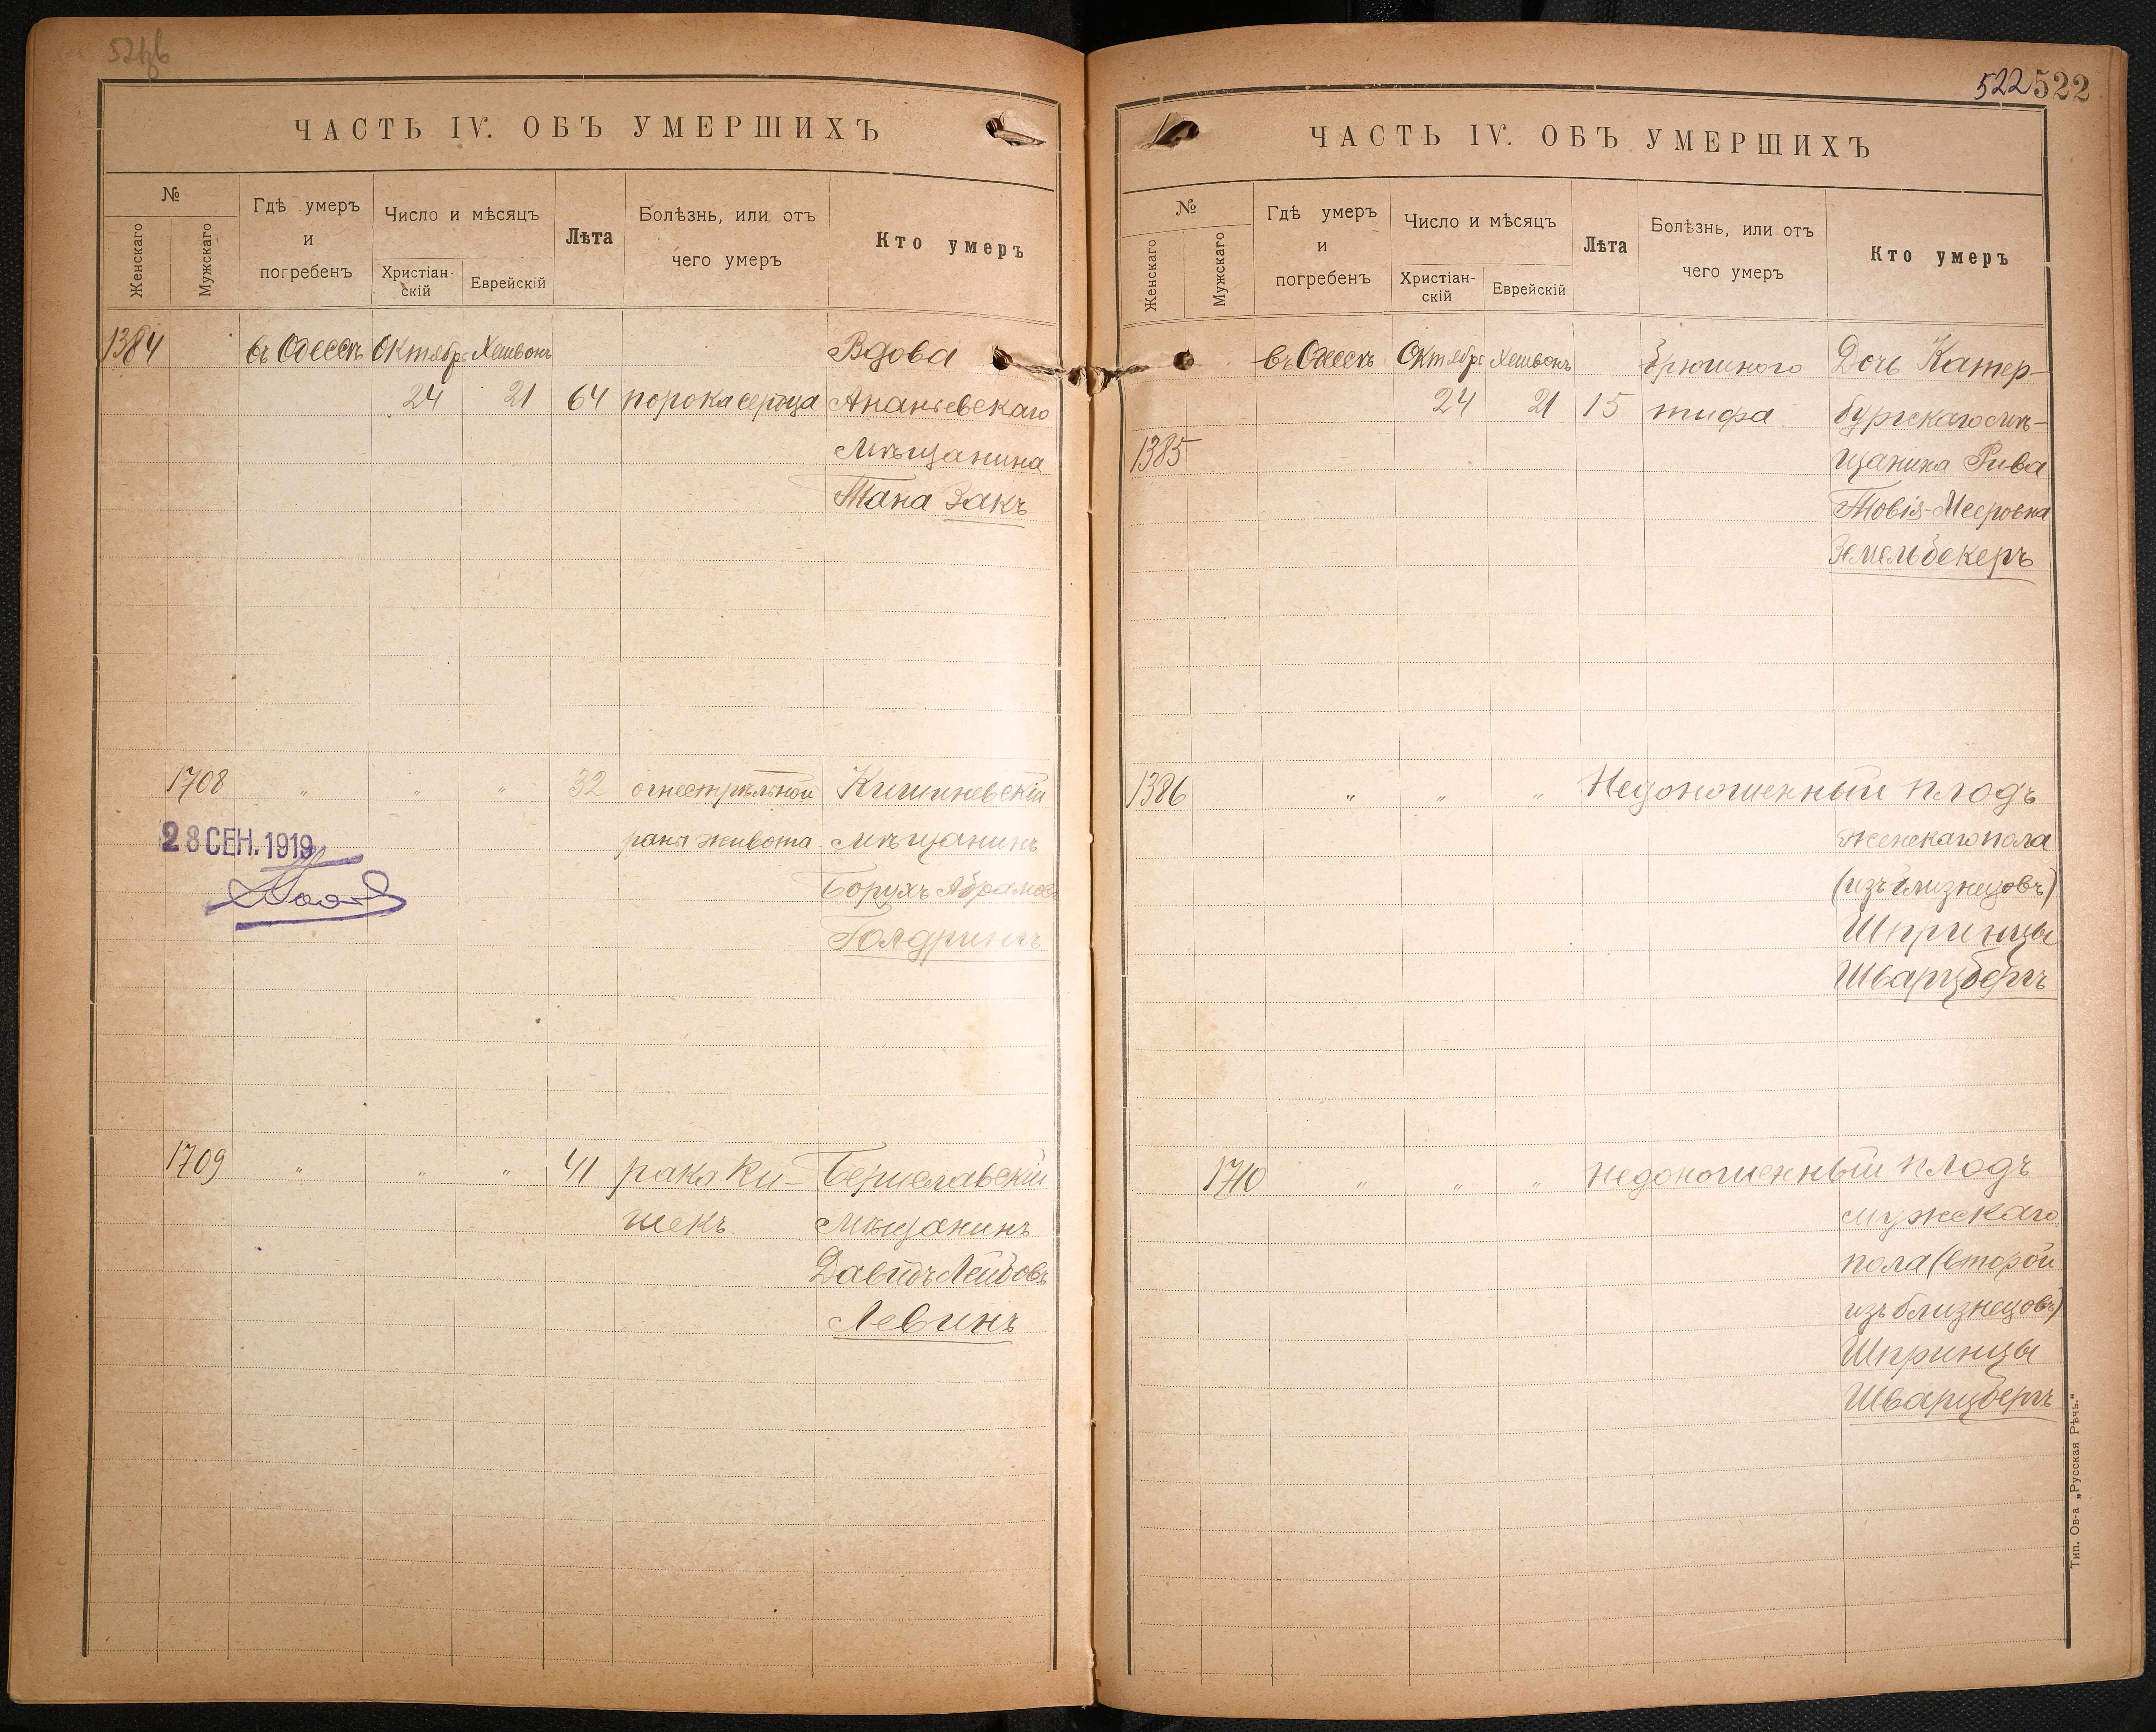 ЧАСТЬ IV. ОБЪ УМЕРШИХЪ
№
Женскаго
Мужскаго
Гдѣ умеръ
и
погребенъ
Число и мѣсяцъ
Христіан-
скій
Еврейскій
Лѣта
Болѣзнь, или отъ
чего умеръ
Кто умеръ
1384 въ Одессѣ Октябр Хешвонъ Вдова
24 21 64 порока сердца Ананьевскаго
мѣщанина
Тана Закъ
1708 " " " 32 огнестрѣльной Кишиневскій
28 СЕН. 1919 раны живота мѣщанинъ
Борухъ Абрамов
Голдрингъ
1709 " " " 41 рака ки- Бериславскій
шекъ мѣщанинъ
Давидъ Лейбовъ
Левинъ
522 522
ЧАСТЬ IV. ОБЪ УМЕРШИХЪ
№
Женскаго
Мужскаго
Гдѣ умеръ
и
погребенъ
Число и мѣсяцъ
Христіан-
скій
Еврейскій
Лѣта
Болѣзнь, или отъ
чего умеръ
Кто умеръ
въ Одессѣ Октябр Хешвонъ брюшного Дочь Катер-
24 21 15 тифа бургскаго мѣ-
1385 щанина Рива
Товія-Мееровна
Земельбекеръ
1386 " " " Недоношенный плодъ
женскаго пола
(изъ близнецовъ)
Шпринцы
Шварцбергъ
1710 " " " Недоношенный плодъ
мужскаго
пола (второй
изъ близнецовъ)
Шпринцы
Шварцбергъ
Тип. Ов-а „Русская Рѣчь."